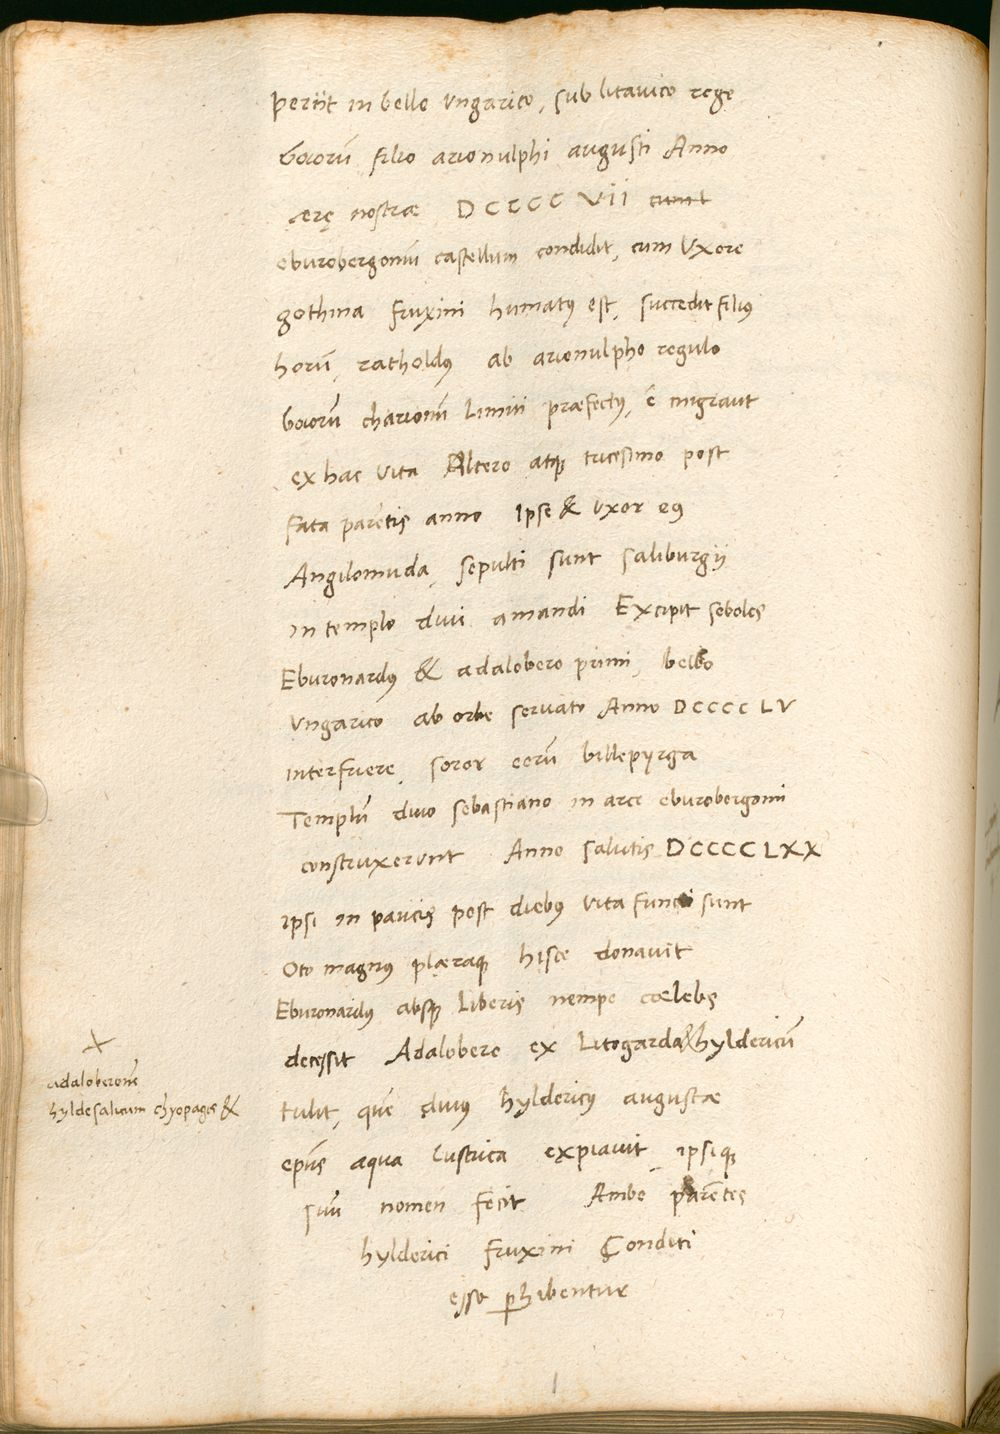 periit in bello ungarico, sub litavico rege
boiorū filio arionulphi augusti Anno
ærę nostræ DCCCC VII cumt
eburobergomū castellum condidit, cum Uxore
gothina fruxini humatꝰ est, succedit filiꝰ
horū, ratholdꝰ ab arionulpho regulo
boiorū charionū limiti præfectꝰ, ē migravit
ex hac vita Altero atqꝫ tricesimo post
fata parētis anno Ipse & uxor eꝰ
Angilomuda, sepulti sunt saliburgij
in templo divi amandi Excipit soboles
Eburonardꝰ & adalobero primi, bello
ungarico ab orbe servato Anno DCCCC LV
interfuere, soror eorū billepyrga
Templū divo sebastiano in arce eburobergomi
construxerunt Anno salutis DCCCCLXX
ipsi in paucis post diebꝰ vita functi sunt
Oto magnꝰ plæraqꝫ hisce donavit
Eburonardꝰ absqꝫ liberis nempe cœlebs
decessit Adalobero ex Litogarda & hyldericū
tulit, quē divus hyldericꝰ augustæ
epūs aqua lustrica expiavit, ipsiqꝫ
suū nomen fecit Ambo parētes
hylderici fruxini Conditi
esse ꝑhibentur
adaloberonē
hyldesalicum chyopages &